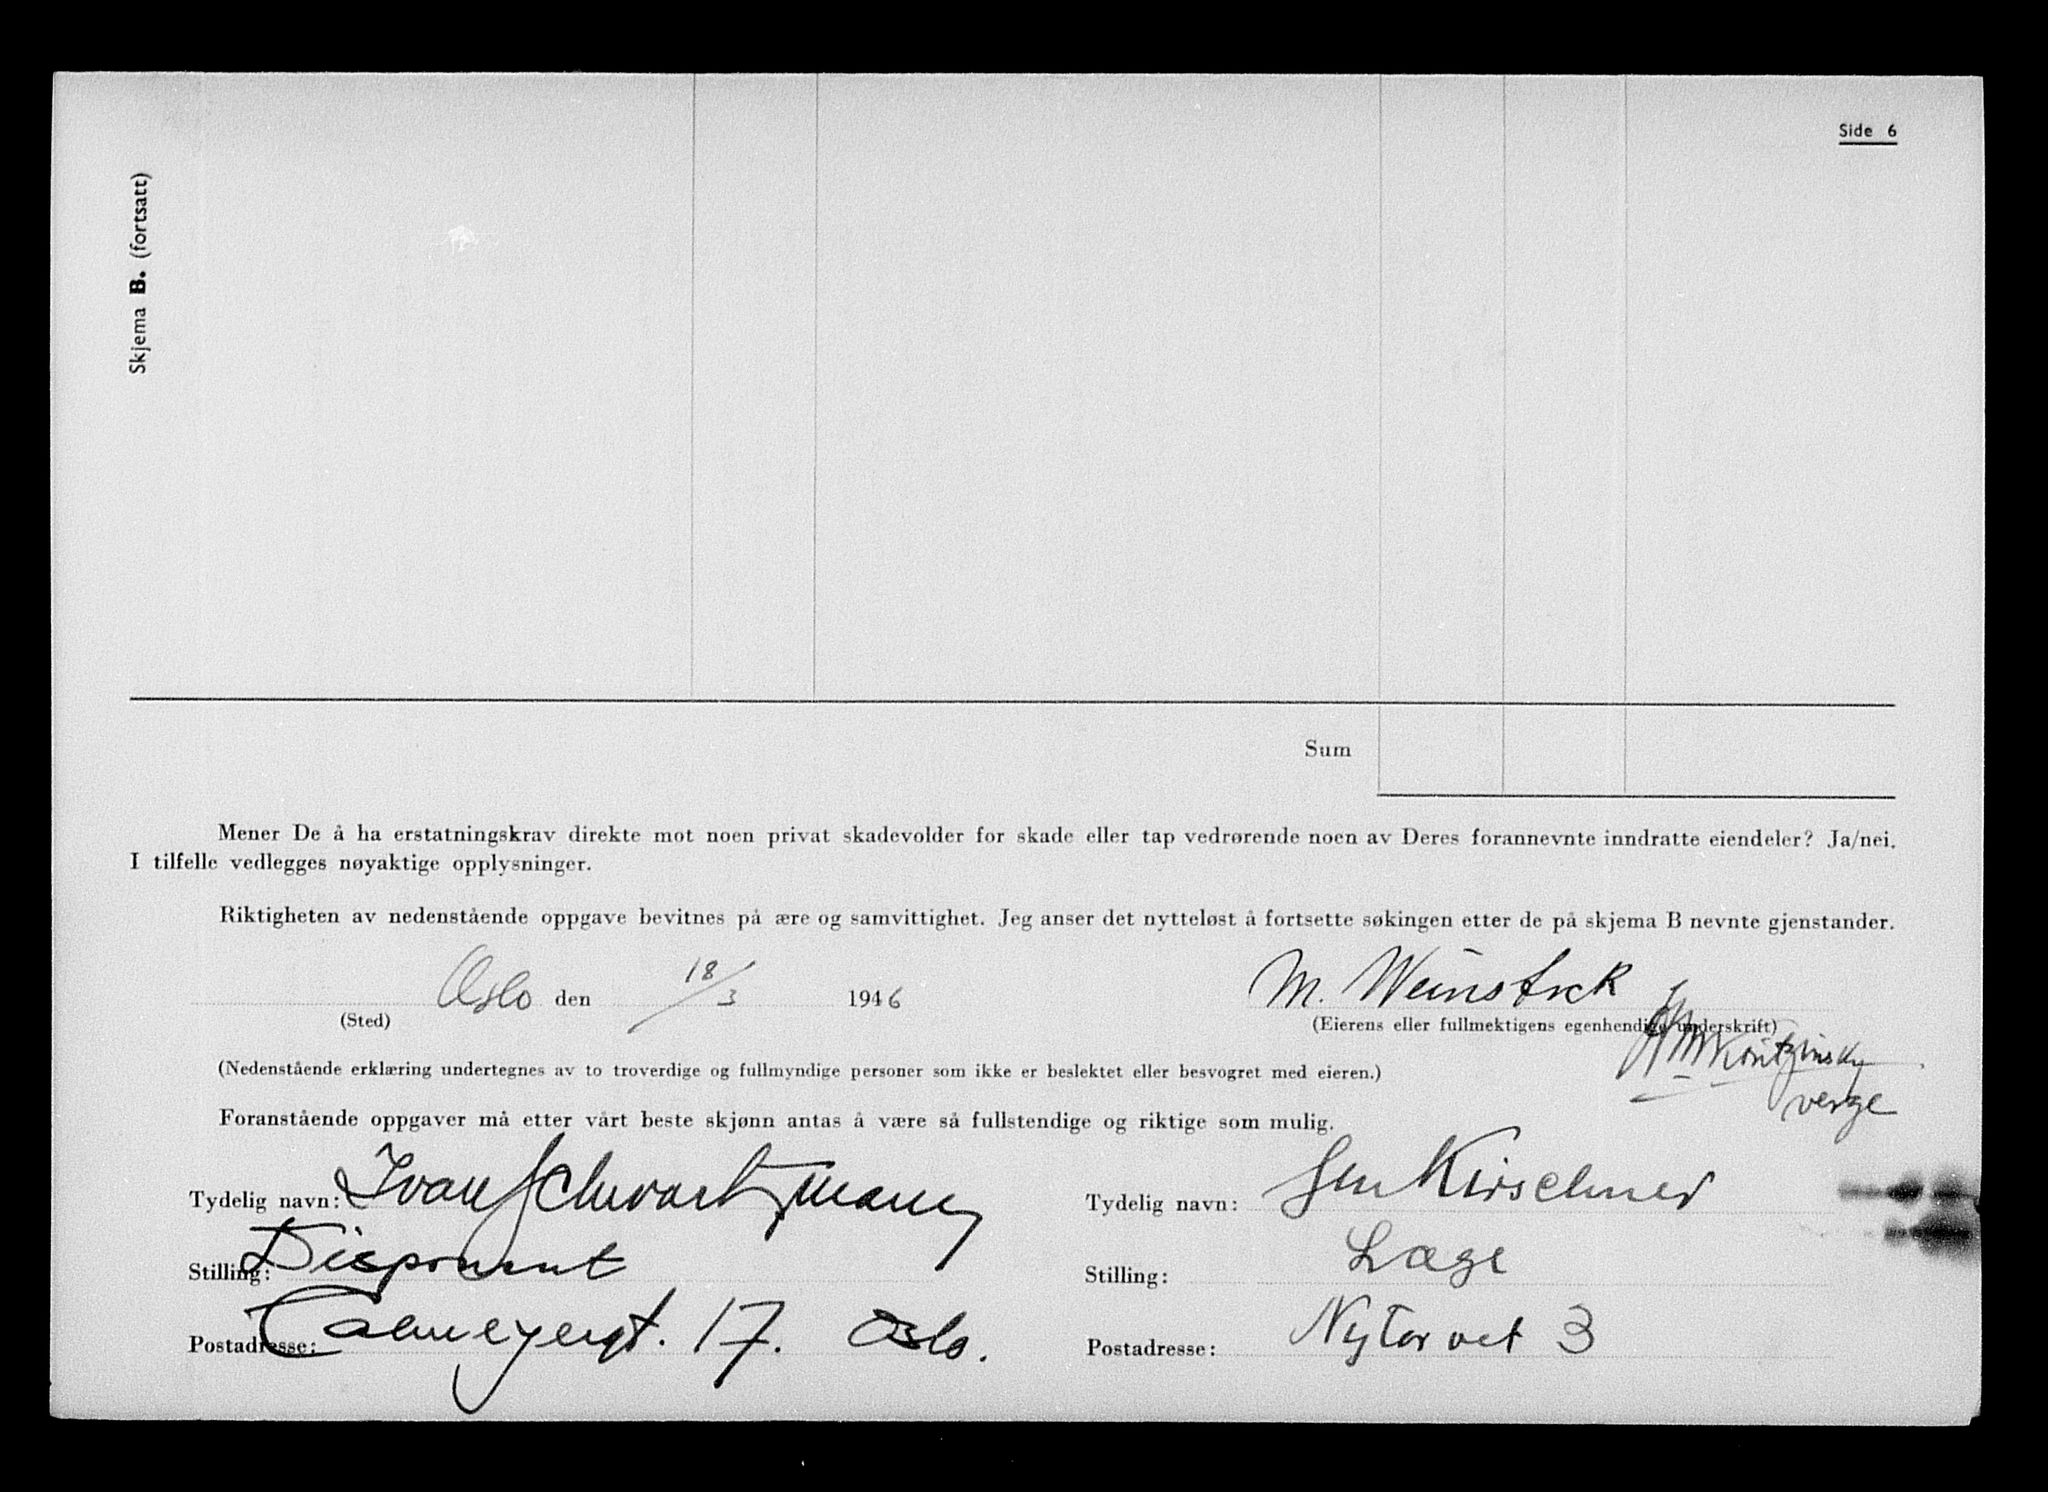 Side 6
Skjema B. (fortsatt)
Sum
Mener De å ha erstatningskrav direkte mot noen privat skadevolder for skade eller tap vedrørende noen av Deres forannevnte inndratte eiendeler? Ja/nei.
I tilfelle vedlegges nøyaktige opplysninger.
Riktigheten av nedenstående oppgave bevitnes på ære og samvittighet. Jeg anser det nytteløst å fortsette søkingen etter de på skjema B nevnte gjenstander.
Oslo den 18/3 1946 M. Weinstock
(Sted) (Eierens eller fullmektigens egenhendige underskrift)
Koritzinsky
verge
(Nedenstående erklæring undertegnes av to troverdige og fullmyndige personer som ikke er beslektet eller besvogret med eieren.)
Foranstående oppgaver må etter vårt beste skjønn antas å være så fullstendige og riktige som mulig.
Tydelig navn: Ivan Schwartzmann Tydelig navn: Kirschner
Stilling: Disponent Stilling: Læge
Postadresse: Calmeyergt. 17. Oslo. Postadresse: Nytorvet 3